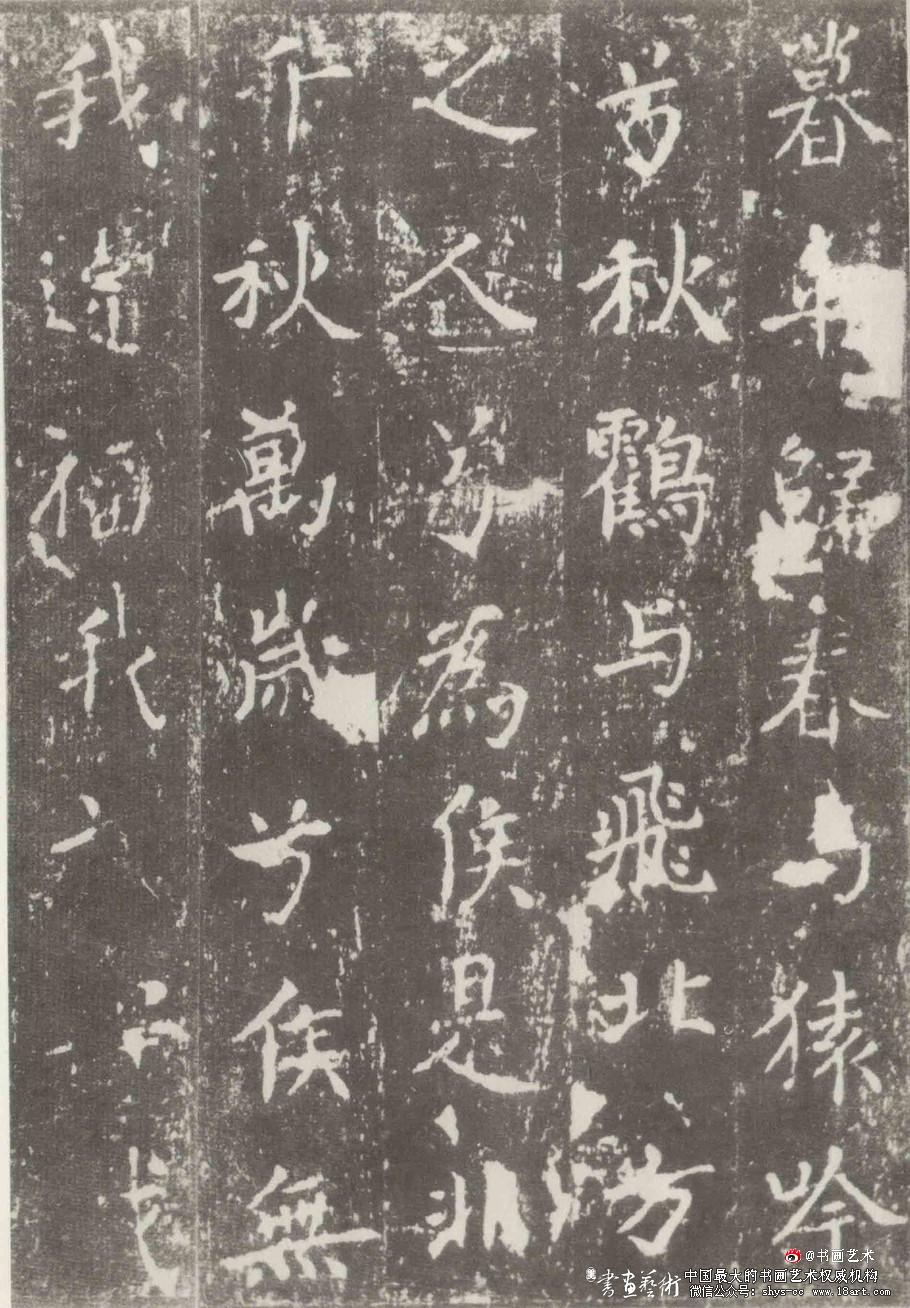 暮来歸春与猿吟
兮秋鶴与飛北方
之人兮為侯是非
千秋萬歲兮侯無
我違福我
@书画艺术
書畫藝術
中国最大的书画艺术权威机构
微信公众号:shys-cc www.18art.com